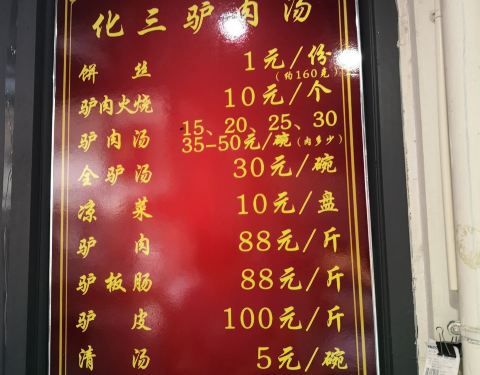 化三驴肉汤
饼丝 1元/份
(约160克)
驴肉火烧 10元/个
驴肉汤 15、20、25、30
35-50元/碗(肉多少)
全驴汤 30元/碗
凉菜 10元/盘
驴肉 88元/斤
驴板肠 88元/斤
驴皮 100元/斤
清汤 5元/碗